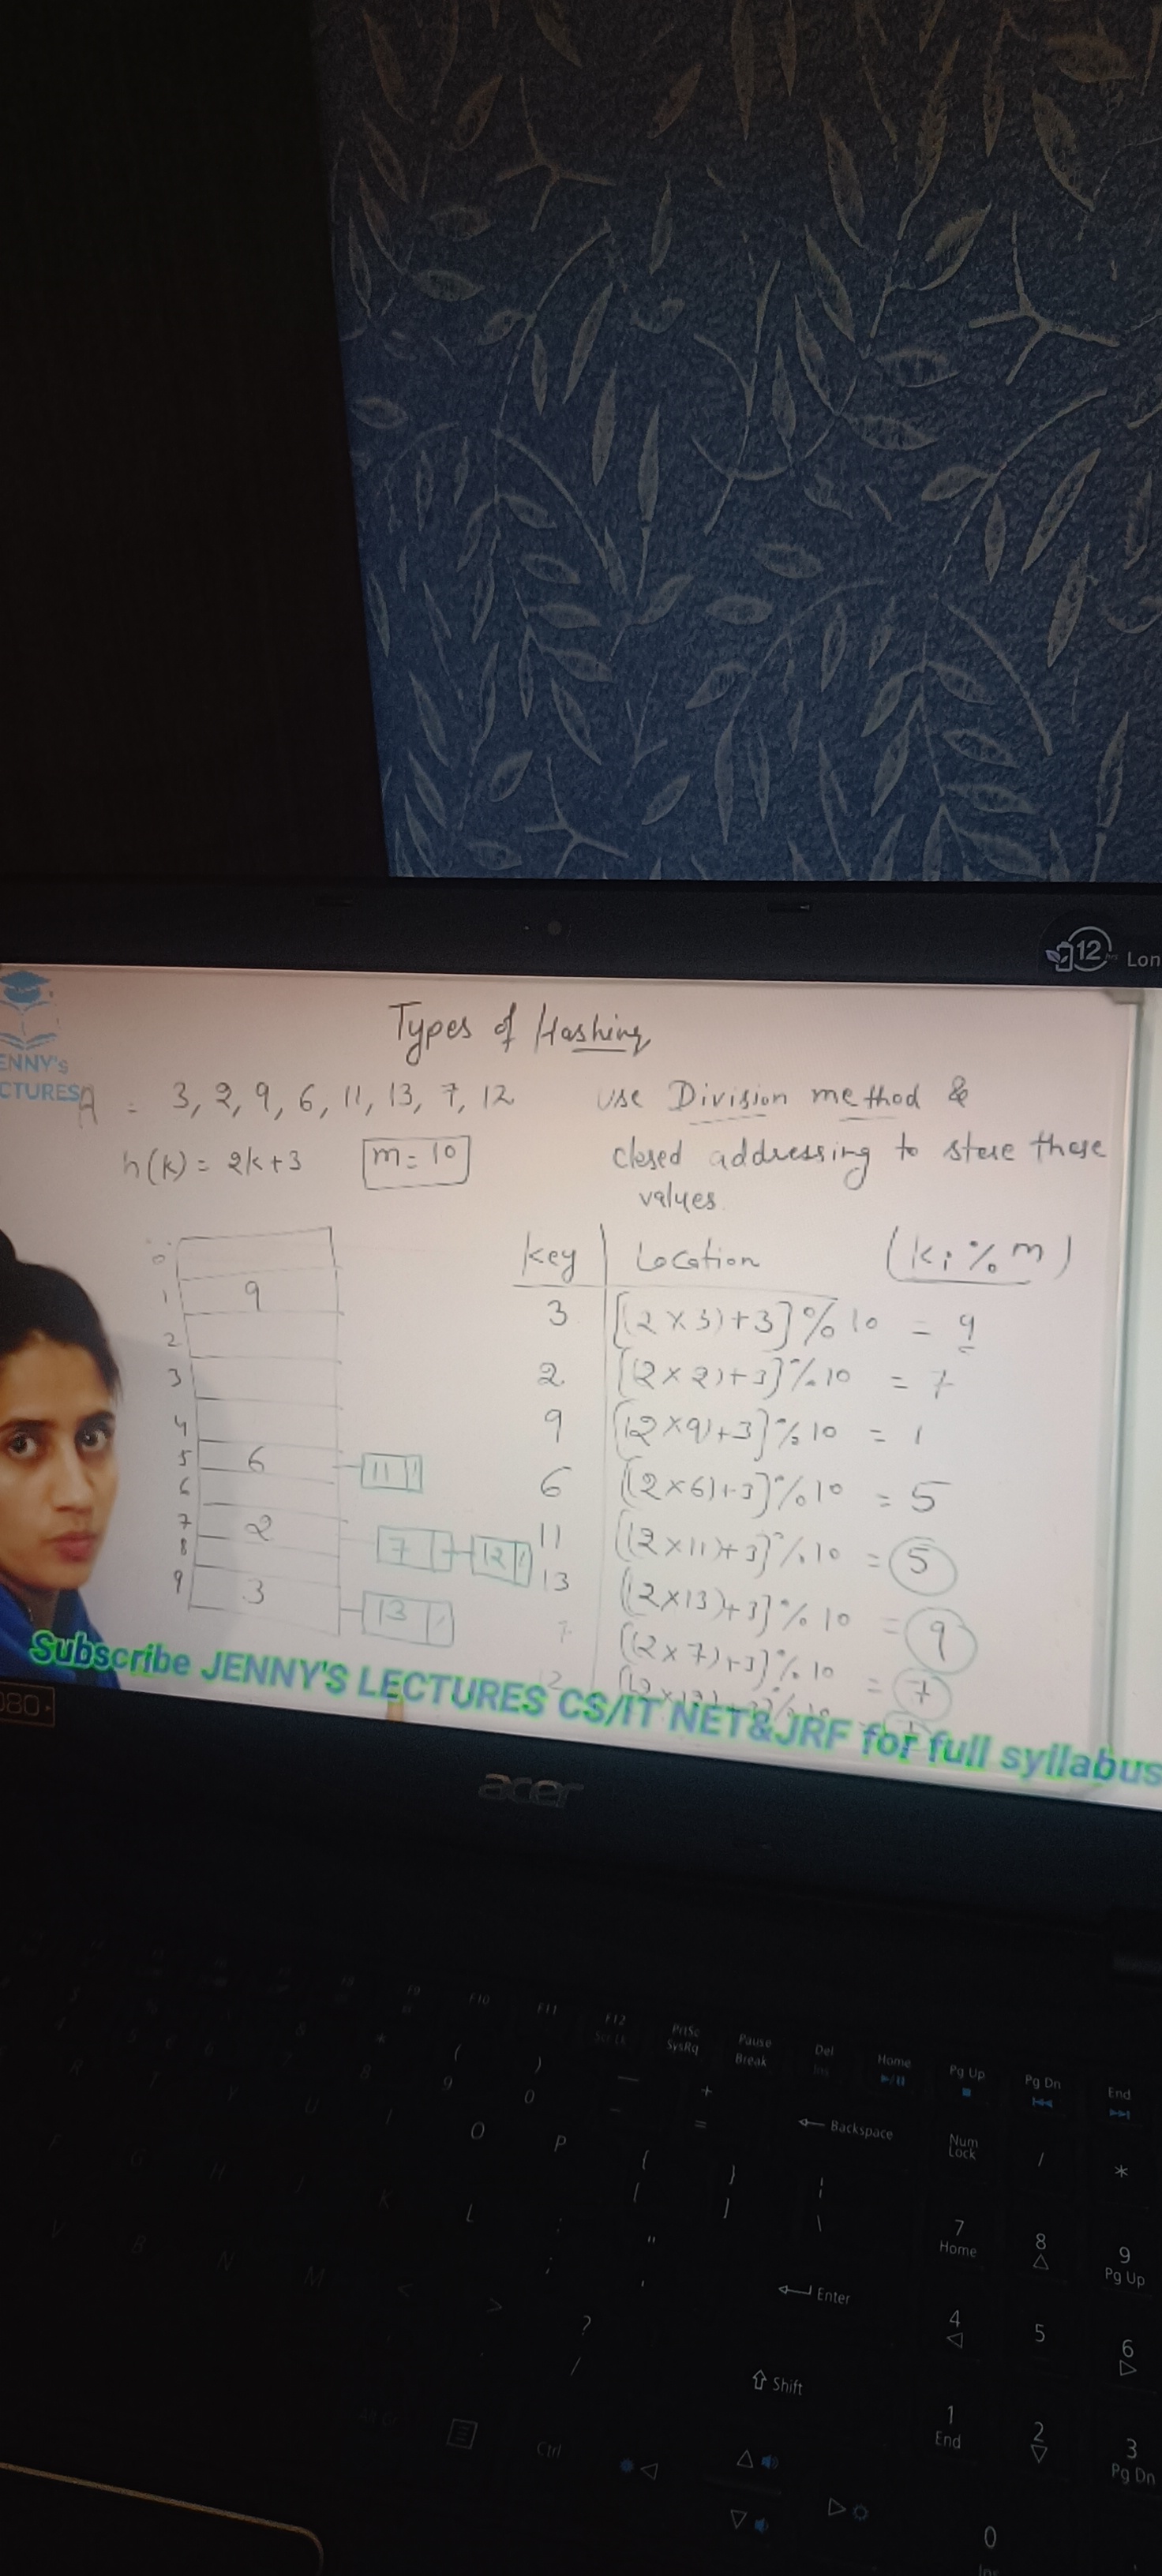 12 hrs Lon
Types of Hashing
ENNY's
CTURES
A = 3, 2, 9, 6, 11, 13, 7, 12
use Division method &
closed addressing to store these
values
h(k) = 2k+3
m = 10
0
1 9
2
3
4
5 6 11
6
7 2 7 12
8
9 3 13
key Location (ki % m)
3 [(2×3)+3]%10 = 9
2 [(2×2)+3]%10 = 7
9 [(2×9)+3]%10 = 1
6 [(2×6)+3]%10 = 5
11 [(2×11)+3]%10 = 5
13 [(2×13)+3]%10 = 9
7 [(2×7)+3]%10 = 7
12
Subscribe JENNY'S LECTURES CS/IT NET&JRF for full syllabus
080
acer
F9 F10 F11 F12 PrtSc SysRq Pause Break Del Ins Home Pg Up Pg Dn End
( 9 ) 0 — - + = Backspace Num Lock / *
O P { [ } ] ¦ \ 7 Home 8 9 Pg Up
K L : ; " ' Enter 4 5 6
V B N M < > ? / Shift 1 End 2 3 Pg Dn
Ctrl 0 Ins